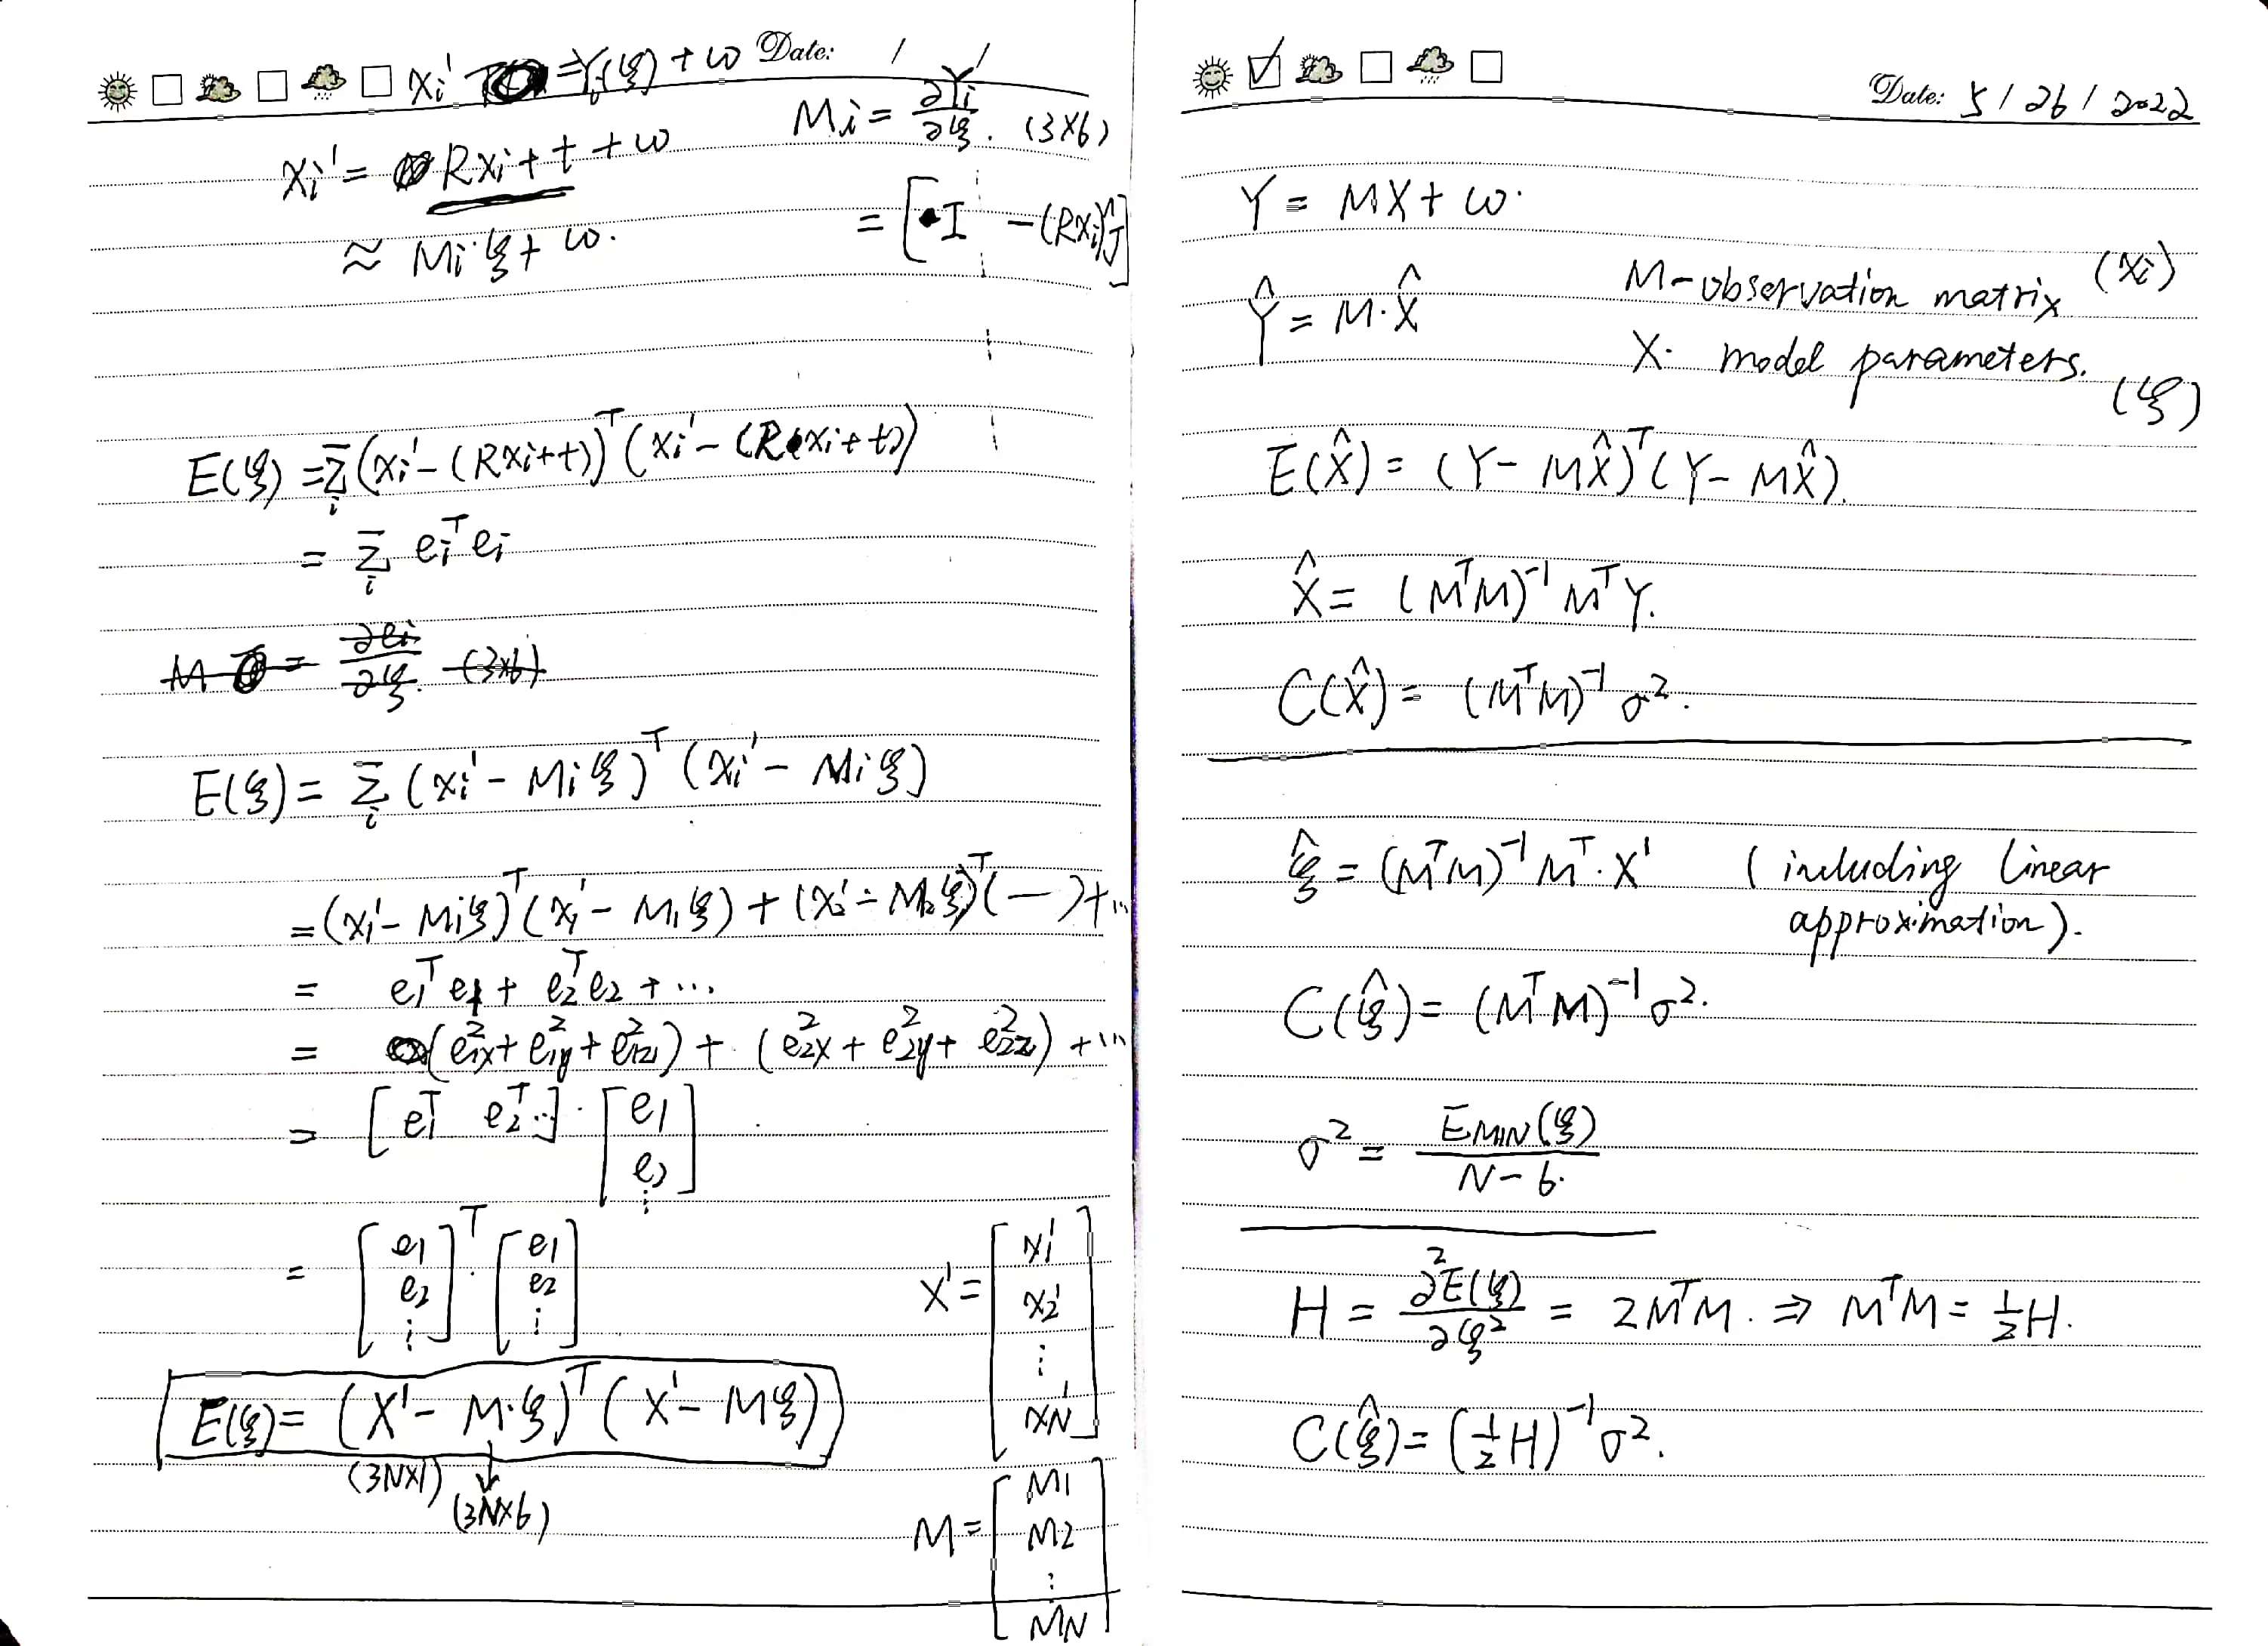 xi' = Yi(ξ) + ω Date: / /
xi' = Rxi + t + ω
Mi = ∂Yi/∂ξ. (3×6)
≈ Mi·ξ + ω.
= [I −(Rxi)^]
E(ξ) = Σi (xi' − (Rxi+t))ᵀ (xi' − (Rxi+t))
= Σi eiᵀ ei
M = ∂ei/∂ξ. (3×6)
E(ξ) = Σi (xi' − Mi ξ)ᵀ (xi' − Mi ξ)
= (x1' − M1ξ)ᵀ (x1' − M1ξ) + (x2' − M2ξ)ᵀ (—) + ...
= e1ᵀ e1 + e2ᵀ e2 + ...
= (e1x² + e1y² + e1z²) + (e2x² + e2y² + e2z²) + ...
= [e1ᵀ e2ᵀ ..] · [e1 e2 ⋮]
= [e1 e2 ⋮]ᵀ · [e1 e2 ⋮]
X' = [x1' x2' ⋮ xN']
E(ξ) = (X' − M·ξ)ᵀ (X' − Mξ)
(3N×1)
(3N×6)
M = [M1 M2 ⋮ MN]
Date: 5 / 26 / 2022
Y = MX + ω.
Ŷ = M·X̂
M - observation matrix (xi)
X. model parameters. (ξ)
E(X̂) = (Y − MX̂)ᵀ (Y − MX̂).
X̂ = (MᵀM)⁻¹ MᵀY.
C(X̂) = (MᵀM)⁻¹ σ².
ξ̂ = (MᵀM)⁻¹ Mᵀ·X' (including linear
approximation).
C(ξ̂) = (MᵀM)⁻¹ σ².
σ² = EMIN(ξ) / N − 6.
H = ∂²E(ξ)/∂ξ² = 2MᵀM. ⇒ MᵀM = ½H.
C(ξ̂) = (½H)⁻¹ σ².